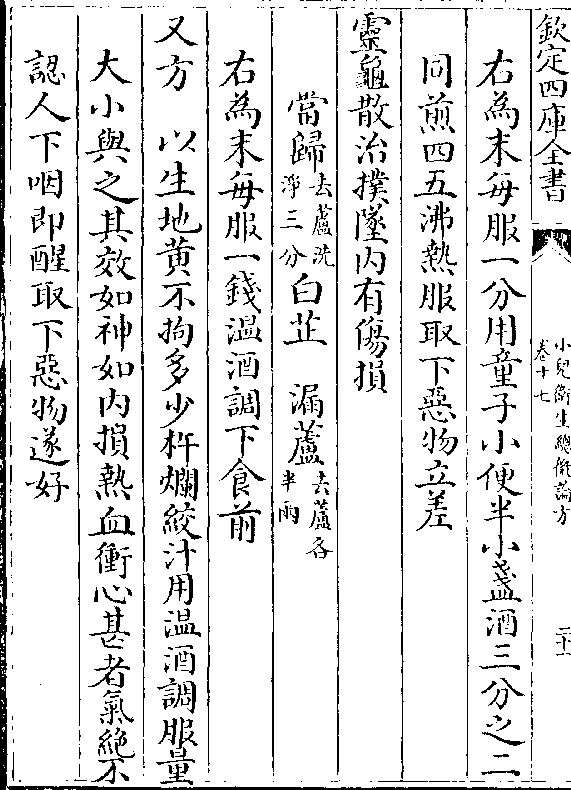 欽定四庫全書
小兒衛生總微論方
卷十七
二十一
右為末每服一分用童子小便半小盞酒三分之二
同煎四五沸熱服取下惡物立差
靈龜散治撲墜内有傷損
當歸去蘆洗淨三分白芷 漏蘆去蘆各半兩
右為末每服一錢温酒調下食前
又方 以生地黄不拘多少杵爛絞汁用温酒調服量
大小與之其效如神如内損熱血衝心甚者氣絶不
認人下咽即醒取下惡物遂好